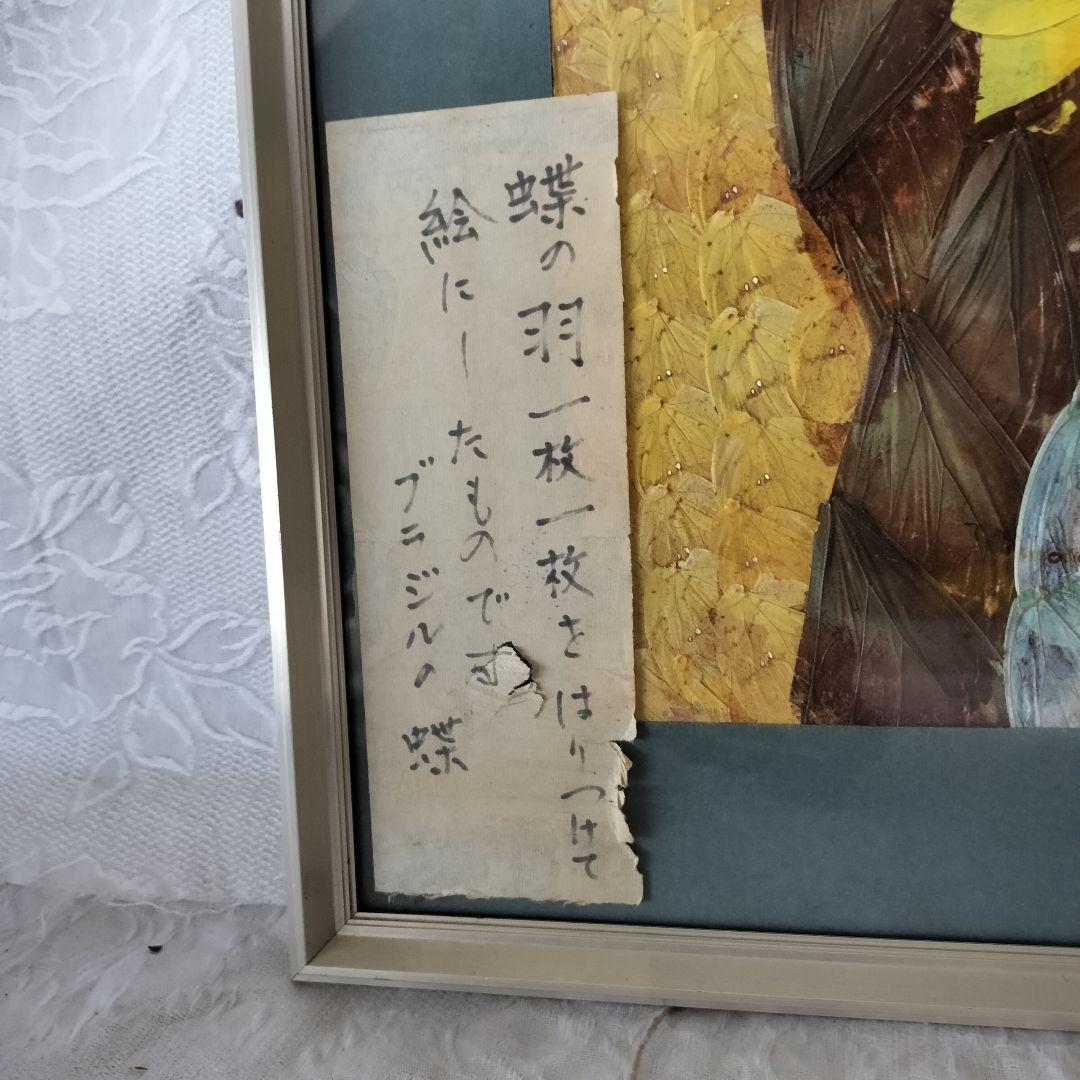 蝶の羽一枚一枚をはりつけて
絵にしたものです
ブラジルの蝶